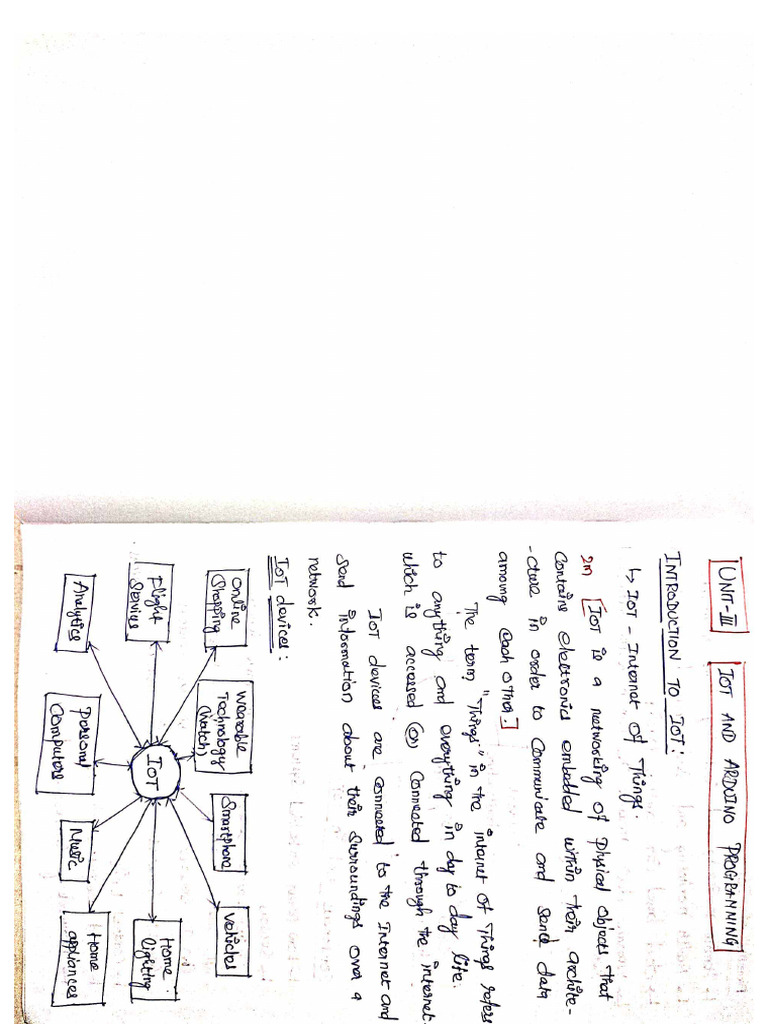 UNIT-III IOT AND ARDUINO PROGRAMMING
INTRODUCTION TO IOT:
↳ IOT - Internet of Things.
2m [IOT is a networking of Physical Objects that
contains electronics embedded within their archite-
-cture in order to communicate and send data
among each other.]
The term "Things" in the internet of Things refers
to anything and everything in day to day life.
which is accessed (or) connected through the internet.
IOT devices are connected to the Internet and
send information about their surroundings over a
network.
IOT devices:
Online
Shopping
Wearable
Technology
(Watch)
Smartphone
Vehicles
Flight
Service
IOT
Home
lighting
Analytics
Personal
Computers
Music
Home
appliances